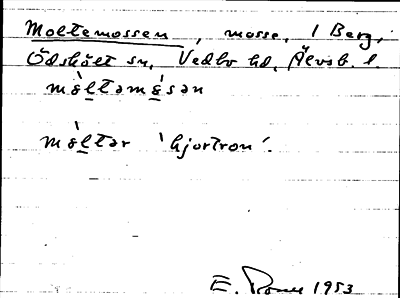 Moltemossen, mosse, 1 Berg,
Ödskölt sn, Vedbo hd, Älvsb. l.
mò̀ltəmɷ̀sən
mò̀ltər 'hjortron'.
E. 1953